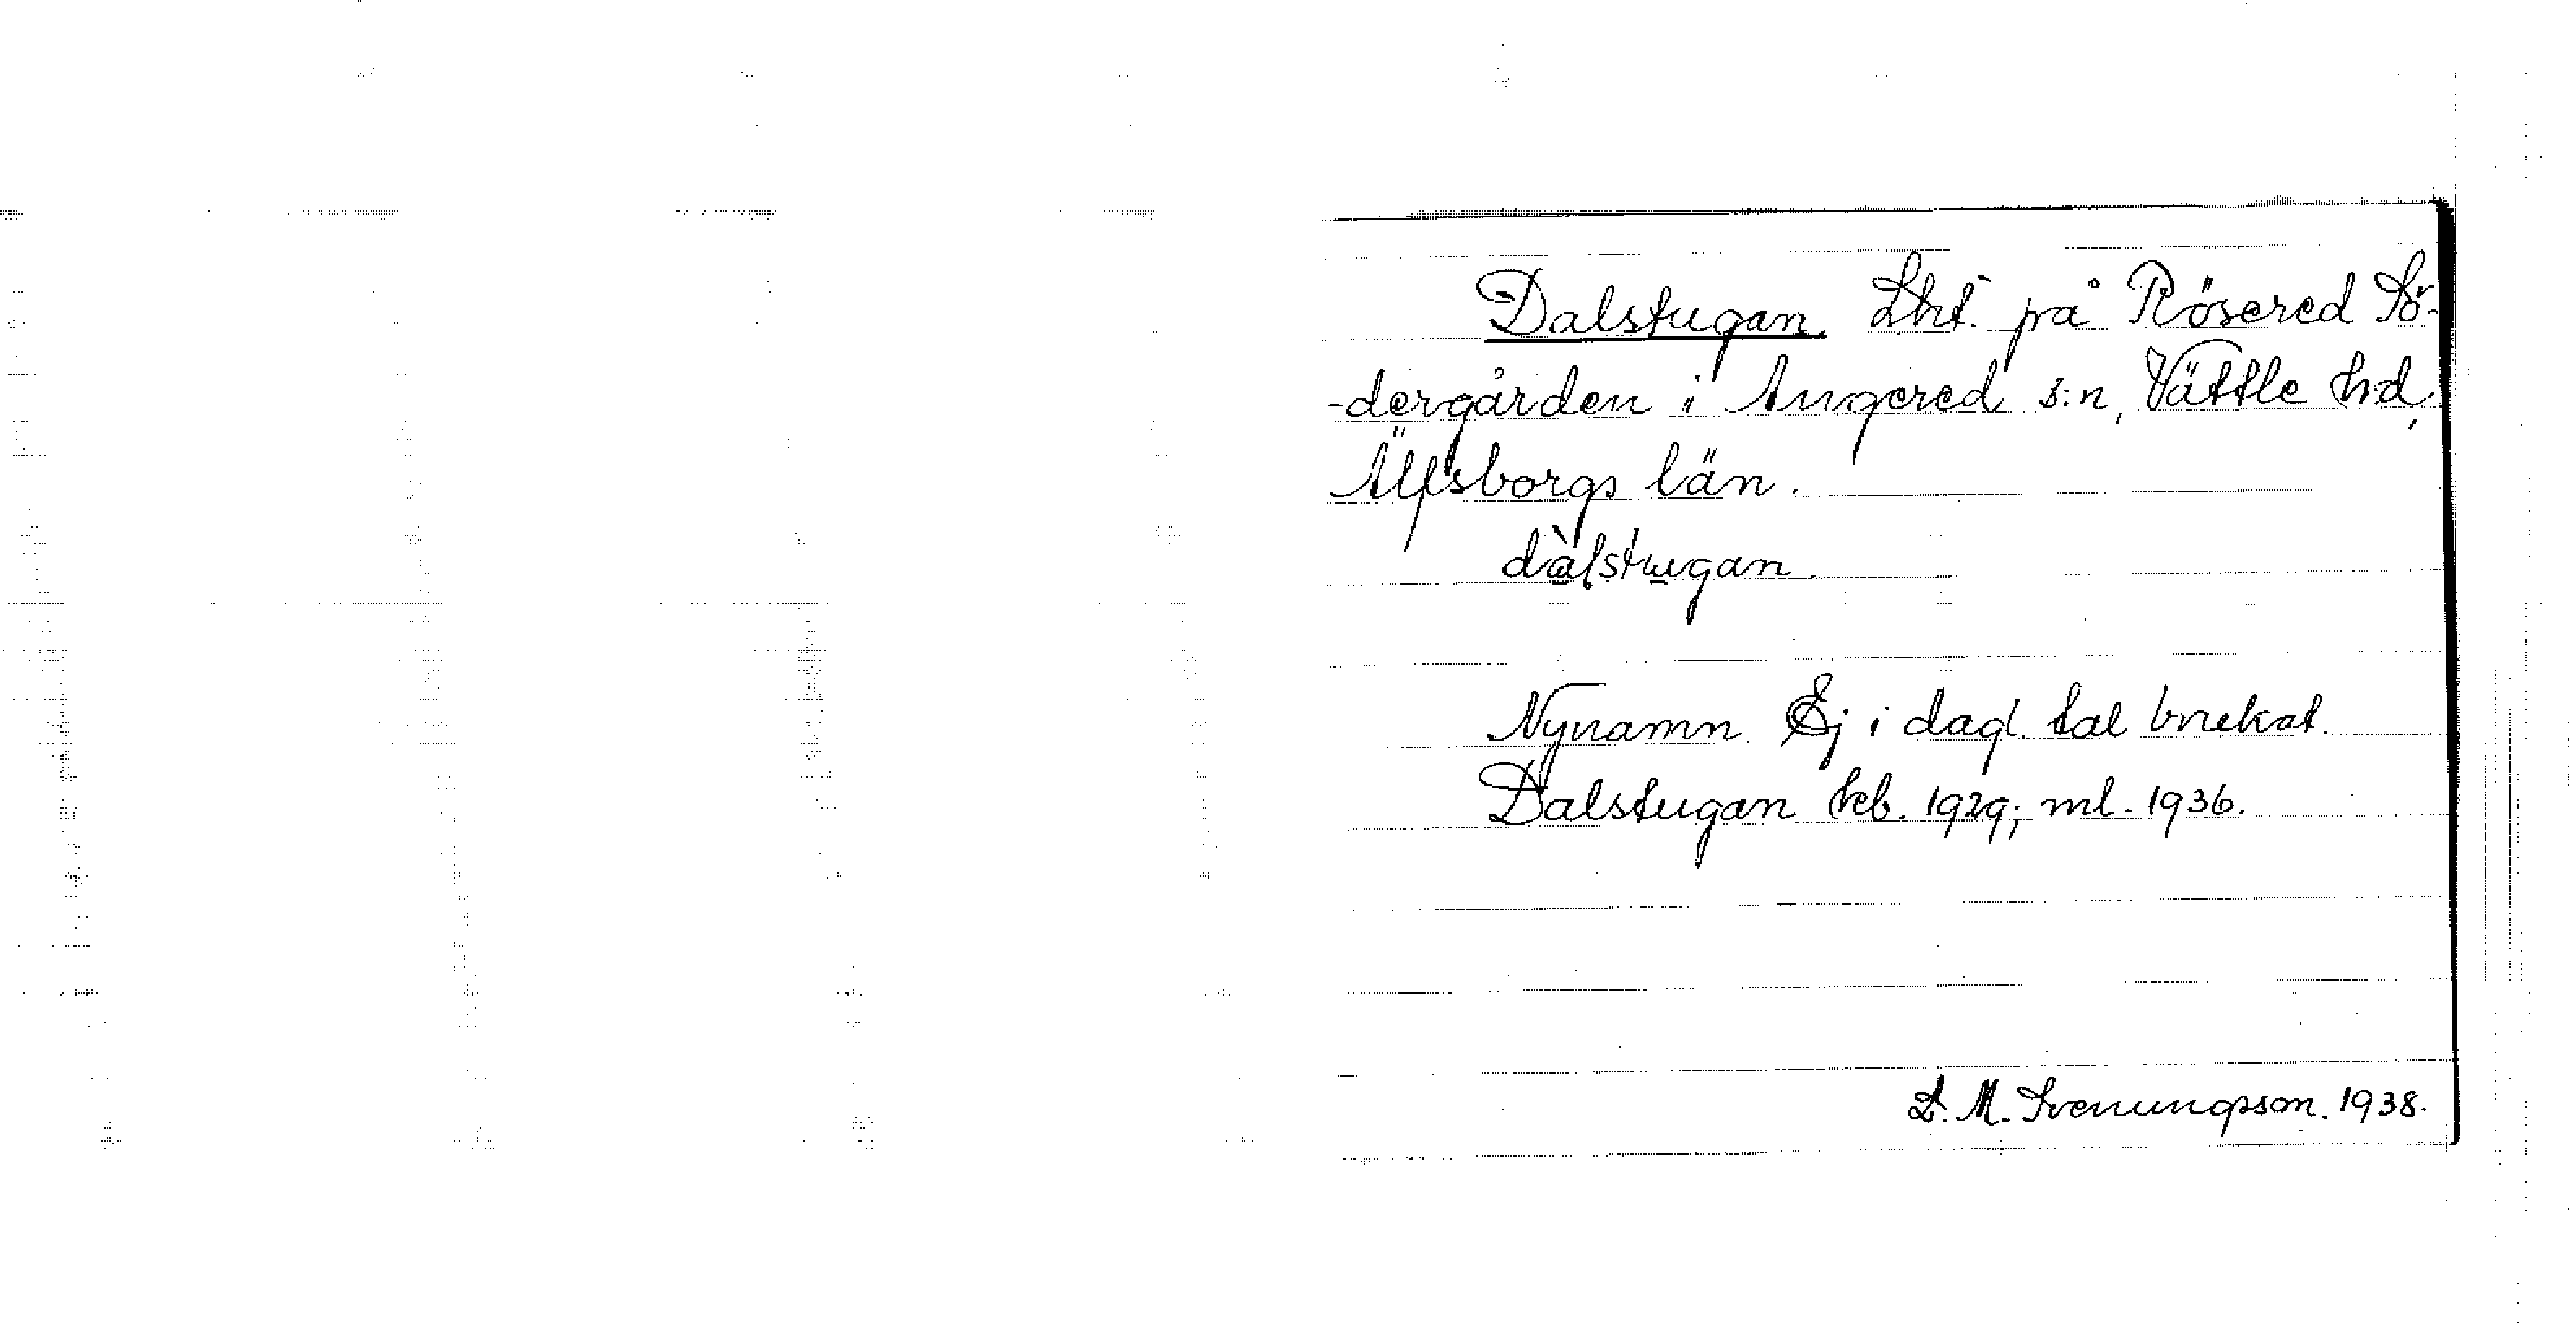 Dalstugan. Lht. på Rösered Sö-
-dergården i Angered s:n, Vättle hd,
Älfsborgs län.
dàlstugan.
Nynamn. Ej i dagl. tal brukat.
Dalstugan kb. 1929; ml. 1936.
S. M. Svenungsson. 1938.